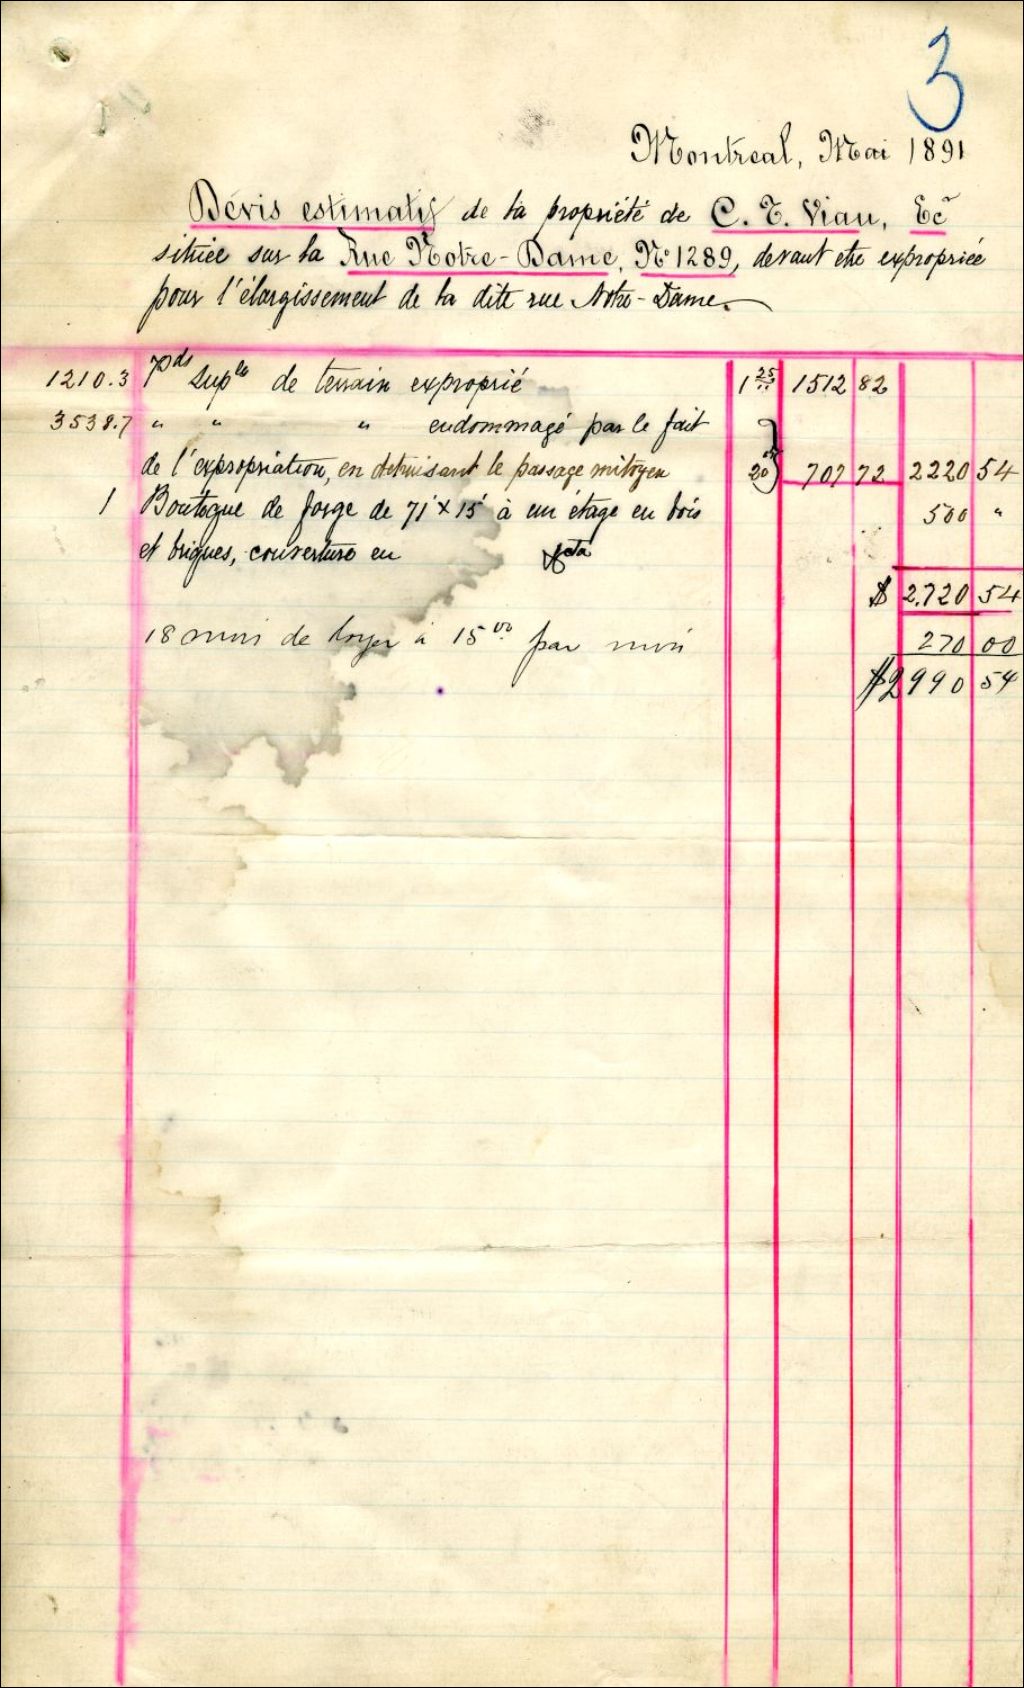 3
Montreal, Mai 1891
Dévis estimatif de la propriété de C. T. Viau, Ecr
située sur la Rue Notre-Dame, No 1289, devant etre expropriée
pour l'élargissement de la dite rue Notre-Dame.
1210.3 Pds Suple de terrain exproprié 1 25 1512 82
3538.7 " " " endommagé par le fait
de l'expropriation, en detruisant le passage mitoyen 20 707 72 2220 54
1 Boutique de forge de 71' x 15' à un étage en bois 500 "
et briques, couverture en
$ 2.720 54
18 mois de loyer à 15 00 par mois 270 00
$2990 54